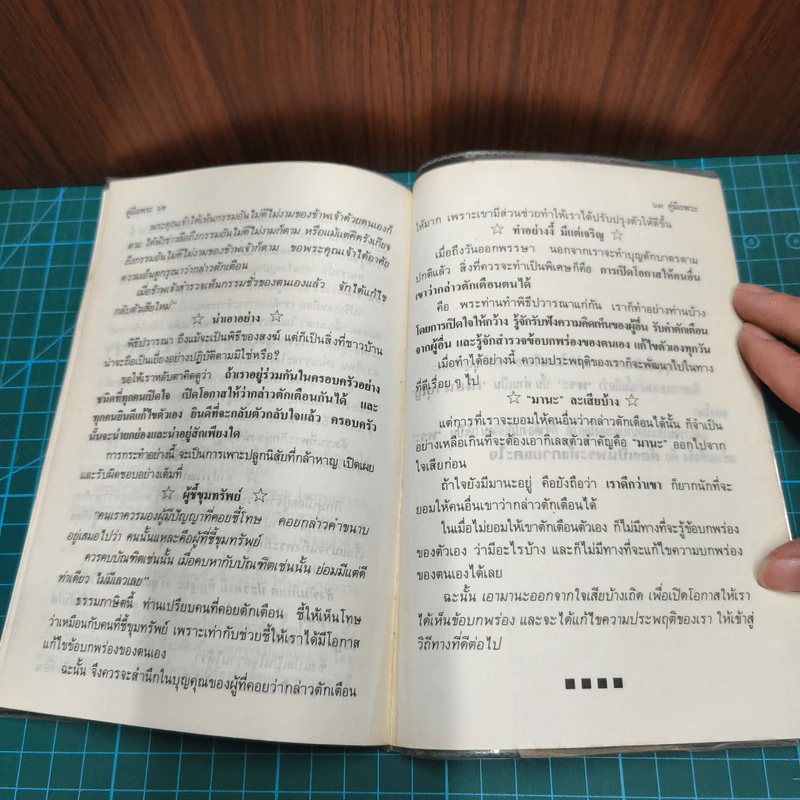 คู่มือพระ ๖๒
พระคุณเจ้าได้เห็นกรรมอันไม่ดีไม่งามของข้าพเจ้าด้วยตนเองก็
ตาม ได้ฟังข่าวลือถึงกรรมอันไม่ดีไม่งามก็ตาม หรือแม้แต่คิดรังเกียจ
ถึงกรรมอันไม่ดีไม่งามของข้าพเจ้าก็ตาม ขอพระคุณเจ้าได้อาศัย
ความเอ็นดูกรุณาว่ากล่าวตักเตือน
เมื่อข้าพเจ้าสำรวจเห็นกรรมชั่วของตนเองแล้ว จักได้แก้ไข
กลับตัวเสียใหม่”
☆ น่าเอาอย่าง ☆
พิธีปวารณา ถึงแม้จะเป็นพิธีของสงฆ์ แต่ก็เป็นสิ่งที่ชาวบ้าน
น่าจะถือเป็นเยี่ยงอย่างปฏิบัติตามมิใช่หรือ?
ขอให้เราหลับตาคิดดูว่า ถ้าเราอยู่ร่วมกันในครอบครัวอย่าง
ชนิดที่ทุกคนเปิดใจ เปิดโอกาสให้ว่ากล่าวตักเตือนกันได้ และ
ทุกคนยินดีแก้ไขตัวเอง ยินดีที่จะกลับตัวกลับใจแล้ว ครอบครัว
นั้นจะน่ายกย่องและน่าอยู่สักเพียงใด
การกระทำอย่างนี้ จะเป็นการเพาะปลูกนิสัยที่กล้าหาญ เปิดเผย
และรับผิดชอบอย่างเต็มที่
☆ ผู้ชี้ขุมทรัพย์ ☆
“คนเราควรมองผู้มีปัญญาที่คอยชี้โทษ คอยกล่าวคำขนาบ
อยู่เสมอไปว่า คนนั้นแหละคือผู้ที่ชี้ขุมทรัพย์
ควรคบบัณฑิตเช่นนั้น เมื่อคบหากับบัณฑิตเช่นนั้น ย่อมมีแต่ดี
ท่าเดียว ไม่มีเลวเลย”
ธรรมภาษิตนี้ ท่านเปรียบคนที่คอยตักเตือน ชี้ให้เห็นโทษ
ว่าเหมือนกับคนที่ชี้ขุมทรัพย์ เพราะเท่ากับช่วยชี้ให้เราได้มีโอกาส
แก้ไขข้อบกพร่องของตนเอง
ฉะนั้น จึงควรจะสำนึกในบุญคุณของผู้ที่คอยว่ากล่าวตักเตือน
๖๓ คู่มือพระ
ให้มาก เพราะเขามีส่วนช่วยทำให้เราได้ปรับปรุงตัวให้ดีขึ้น
☆ ทำอย่างงี้ มีแต่เจริญ ☆
เมื่อถึงวันออกพรรษา นอกจากเราจะทำบุญตักบาตรตาม
ปกติแล้ว สิ่งที่ควรจะทำเป็นพิเศษก็คือ การเปิดโอกาสให้คนอื่น
เขาว่ากล่าวตักเตือนตนได้
คือ พระท่านทำพิธีปวารณาแก่กัน เราก็ทำอย่างท่านบ้าง
โดยการเปิดใจให้กว้าง รู้จักรับฟังความคิดเห็นของผู้อื่น รับคำตักเตือน
จากผู้อื่น และรู้จักสำรวจข้อบกพร่องของตนเอง แก้ไขตัวเองทุกวัน
เมื่อทำได้อย่างนี้ ความประพฤติของเราก็จะพัฒนาไปในทาง
ที่ดีเรื่อย ๆ ไป
☆ “มานะ” ละเสียบ้าง ☆
แต่การที่เราจะยอมให้คนอื่นว่ากล่าวตักเตือนได้นั้น ก็จำเป็น
อย่างเหลือเกินที่จะต้องเอากิเลสตัวสำคัญคือ “มานะ” ออกไปจาก
ใจเสียก่อน
ถ้าใจยังมีมานะอยู่ คือยังถือว่า เราดีกว่าเขา ก็ยากนักที่จะ
ยอมให้คนอื่นเขาว่ากล่าวตักเตือนได้
ในเมื่อไม่ยอมให้เขาตักเตือนตัวเอง ก็ไม่มีทางที่จะรู้ข้อบกพร่อง
ของตัวเอง ว่ามีอะไรบ้าง และก็ไม่มีทางที่จะแก้ไขความบกพร่อง
ของตนเองได้เลย
ฉะนั้น เอามานะออกจากใจเสียบ้างเถิด เพื่อเปิดโอกาสให้เรา
ได้เห็นข้อบกพร่อง และจะได้แก้ไขความประพฤติของเรา ให้เข้าสู่
วิถีทางที่ดีต่อไป